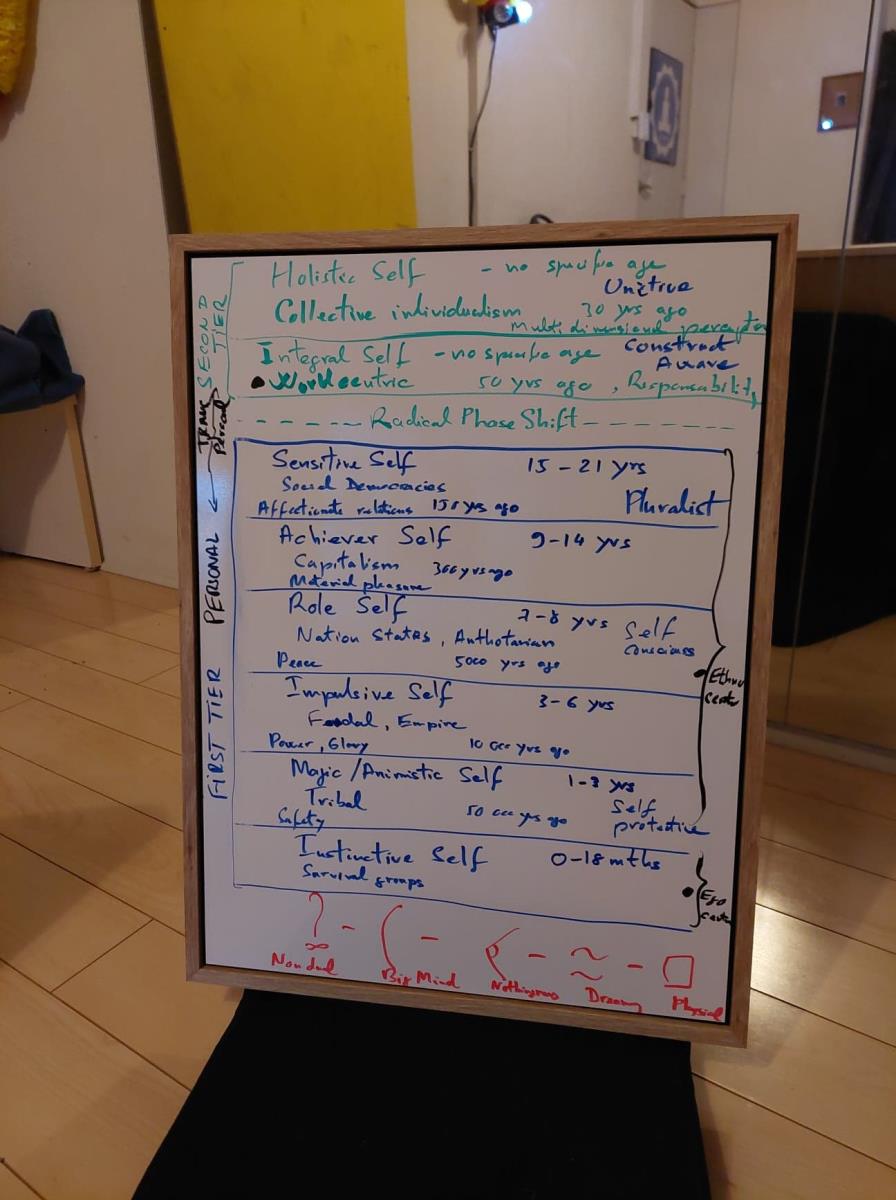 Holistic Self - no specific age
Unitive
Collective individualism 30 yrs ago
Multi dimensional
Integral Self - no specific age Construct
Aware
Worldcentric 50 yrs ago , Responsability
- - - - - Radical Phase Shift - - - - - - -
Sensitive Self 15 - 21 yrs
Social Democracies
Affectionate relations 150 yrs ago Pluralist
Achiever Self 9-14 yrs
Capitalism 300 yrs ago
Material pleasure
Role Self 7-8 yrs Self
Nation States , Authotarian conscious
Peace 5000 yrs ago
Impulsive Self 3-6 yrs
Feodal , Empire
Power , Glory 10 000 yrs ago
Magic / Animistic Self 1-3 yrs
Tribal Self
Safety 50 000 yrs ago protective
Instinctive Self 0-18 mths
Survival groups
SECOND
TIER
Trans
Personal
FIRST TIER PERSONAL
Ethno
centr
Ego
centr
? ∞ - ( - - ≈ - □
Non dual Big Mind Nothingness Dreamy Physical